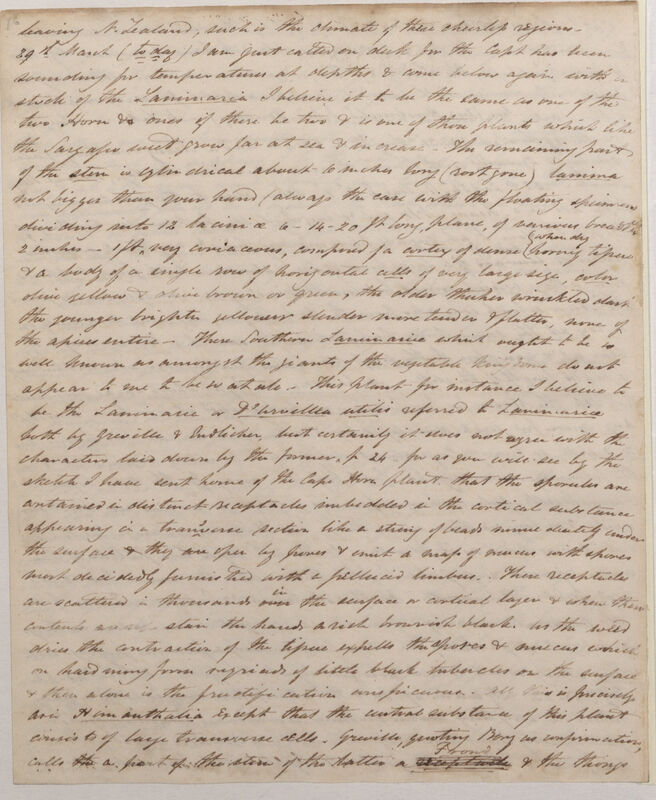 leaving N. Zealand, such is the climate of these cheerless regions.
29th March (to day) I am just called on deck for the Capt has been
sounding for temperatures at depths & come below again with a
stock of the Laminaria I believe it to be the same as one of the
two Horn ones if there be two & is one of those plants which like
the Sargasso weed grow far at sea & increase. The remaining part
of the stem is cylindrical about 6 inches long (root gone) lamina
not bigger than your hand (always the case with the floating specimens
dividing into 12 laciniae 6-14-20 ft long, plane, of various breadths
2 inches - 1 ft, very coriaceous, composed of a cortex of dense (when dry) horny tissue
& a body of a single row of horizontal cells of very large size, color
olive yellow & olive brown or green, the older thicker wrinkled dark
the younger brighter yellower slender more tender & flatter, none of
the apices entire - These Southern Laminariae which ought to be so
well known as amongst the giants of the vegetable Kingdom do not
appear to me to be so at all. - This plant for instance I believe to
be the Laminariae or D'urvillea utilis referred to Laminariae
both by Greville & Endlicher, but certainly it does not agree with the
characters laid down by the former, p 24 for as you will see by the
sketch I have sent home of the Cape Horn plant that the sporules are
contained in distinct receptacles imbedded in the cortical substance
appearing in a transverse section like a string of beads immediately under
the surface & they are open by pores & emit a mass of mucus with spores
most decidedly furnished with a pellucid limbus. These receptacles
are scattered in thousands in over the surface or cortical layer & when their
contents stain the hands a rich brownish black. As the weed
dries the contraction of the tissue expells the spores & mucus which
on hardning form myriads of little black tubercles on the surface
& then alone is the fructification conspicuous. all this is precisely
as in Himanthalia except that the central substance of this plant
consists of large transverse cells. Greville, quoting Bory as confirmation,
calls the a part of the stem of the latter a receptacle Frond & the things